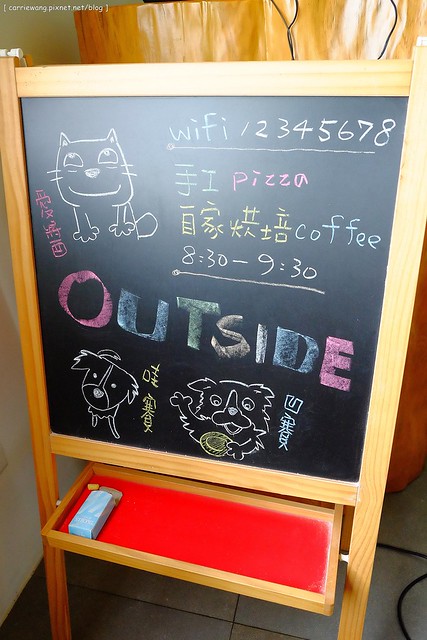 [ carriewang.pixnet.net/blog ]
wifi 12345678
手工 pizza
自家烘培 coffee
8:30-9:30
OUTSIDE